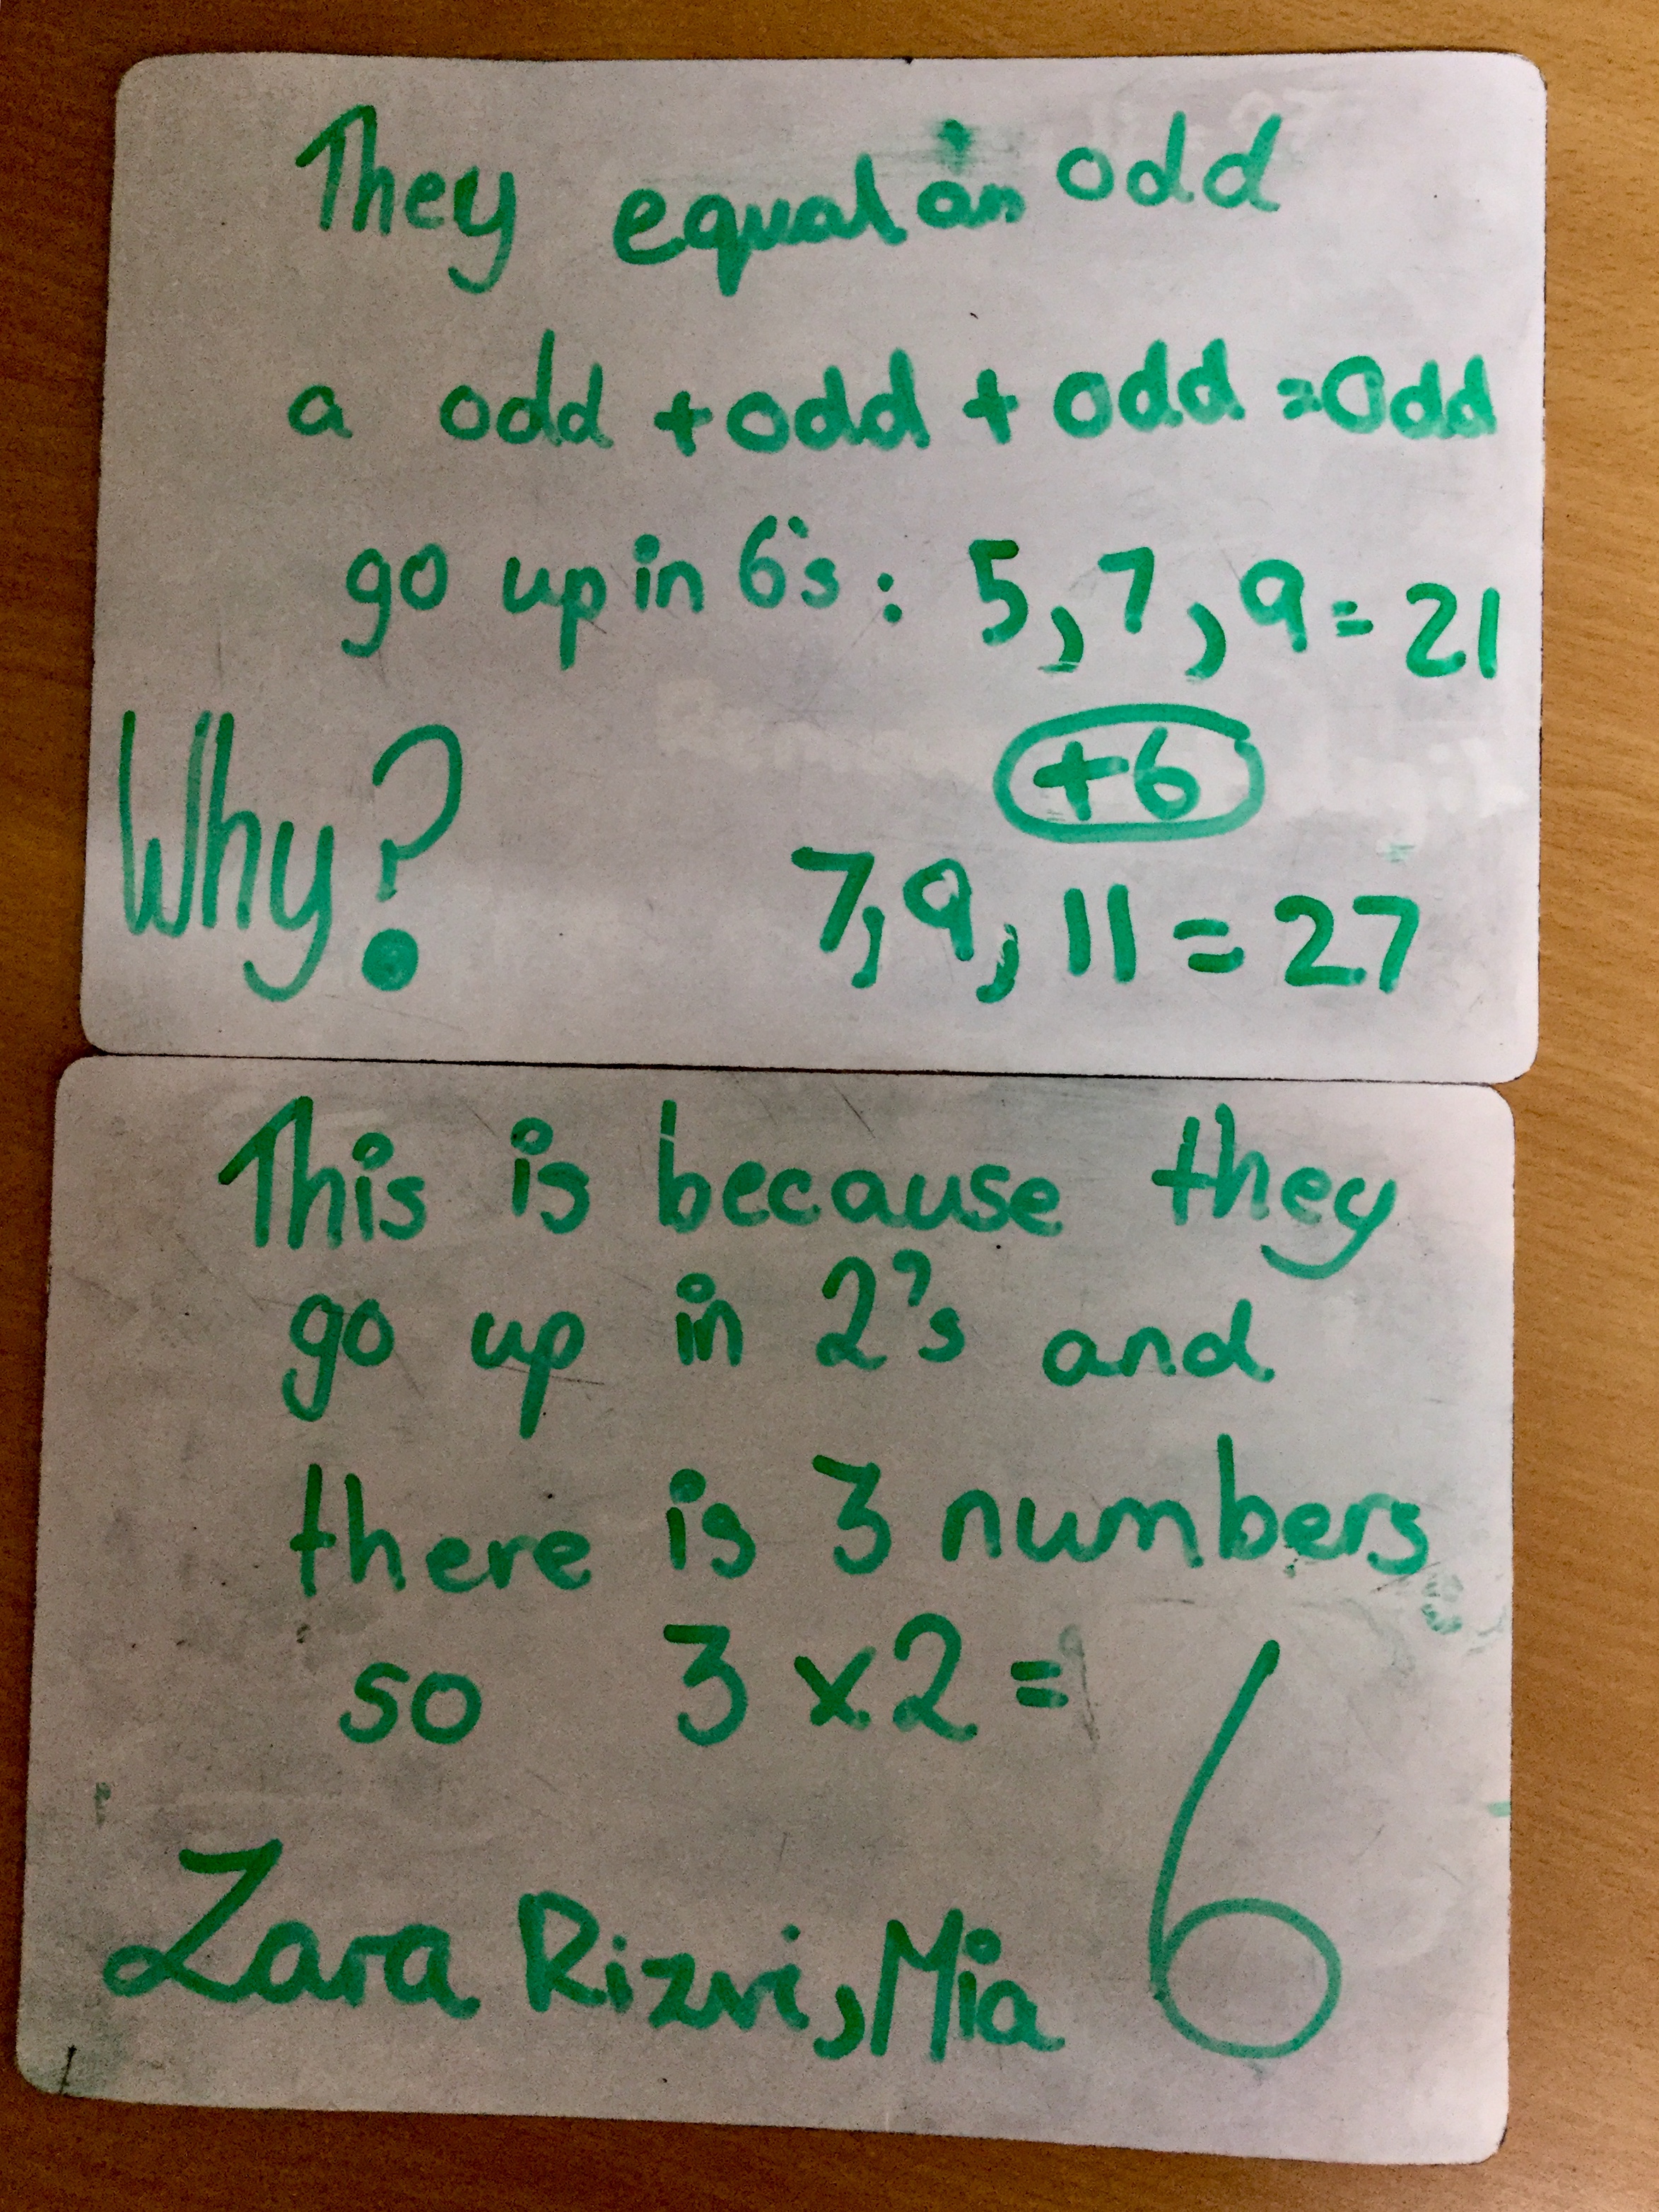 They equal an odd
a odd + odd + odd = Odd
go up in 6's : 5, 7, 9 = 21
+6
Why?
7, 9, 11 = 27
This is because they
go up in 2's and
there is 3 numbers
so 3 x 2 = 6
Zara Rizvi, Mia